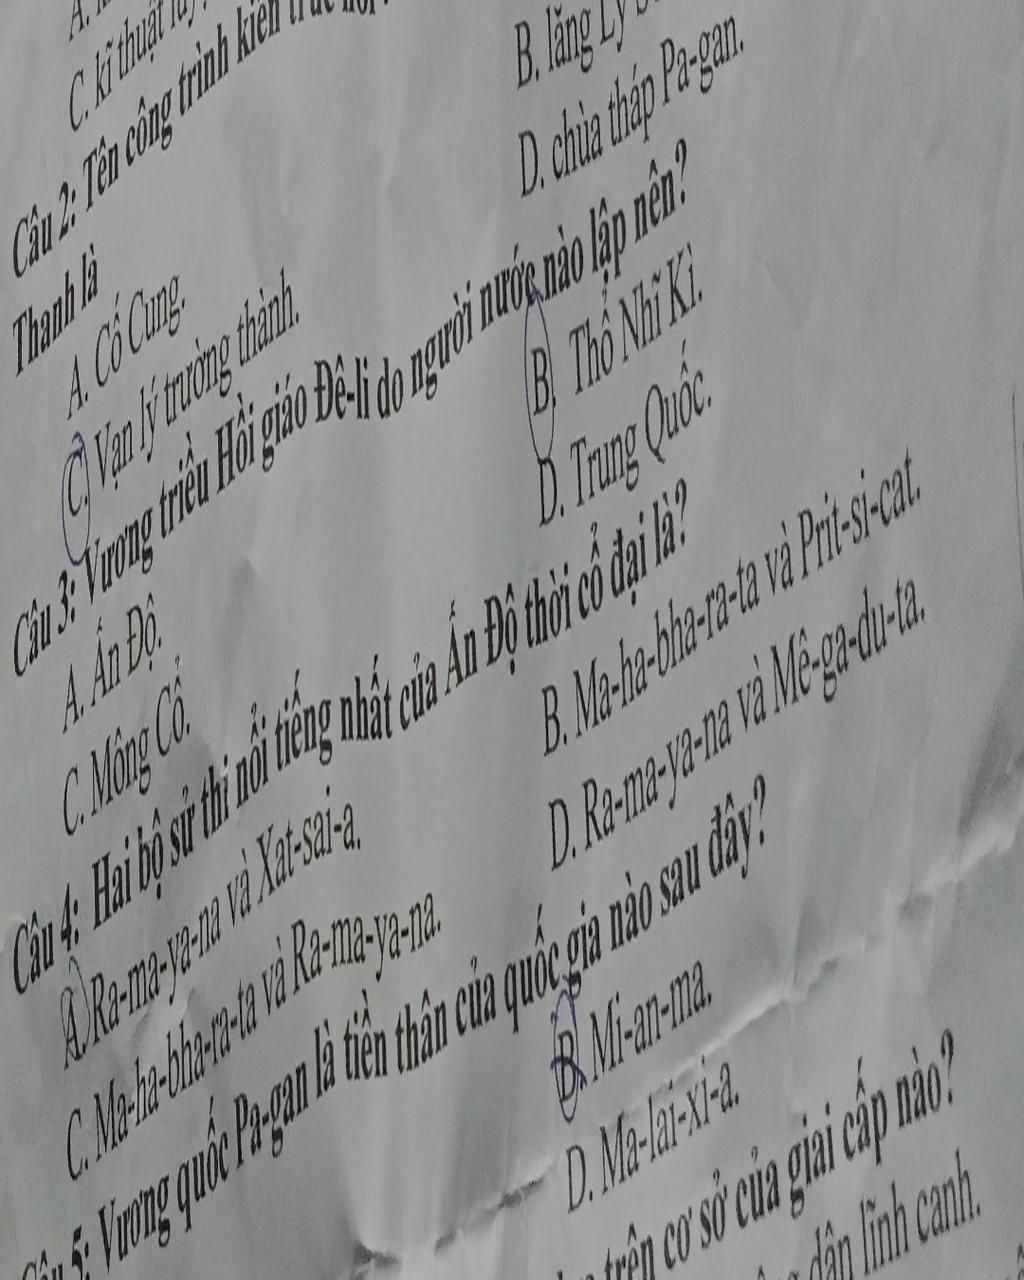 C. kĩ thuật
B. lăng Lý
D. chùa tháp Pa-gan.
Câu 2: Tên công trình kiến trúc
Thanh là
A. Cố Cung.
C. Vạn lý trường thành.
Câu 3: Vương triều Hồi giáo Đê-li do người nước nào lập nên?
A. Ấn Độ.
B. Thổ Nhĩ Kì.
C. Mông Cổ.
D. Trung Quốc.
Câu 4: Hai bộ sử thi nổi tiếng nhất của Ấn Độ thời cổ đại là?
A. Ra-ma-ya-na và Xat-sai-a.
B. Ma-ha-bha-ra-ta và Prit-si-cat.
C. Ma-ha-bha-ra-ta và Ra-ma-ya-na.
D. Ra-ma-ya-na và Mê-ga-du-ta.
Câu 5: Vương quốc Pa-gan là tiền thân của quốc gia nào sau đây?
B. Mi-an-ma.
D. Ma-lai-xi-a.
trên cơ sở của giai cấp nào?
dân lĩnh canh.